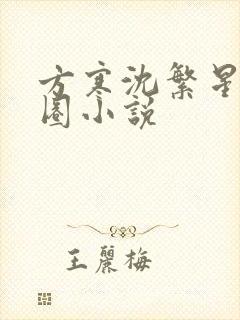 方寒沈繁星
圈小説
王麗梅